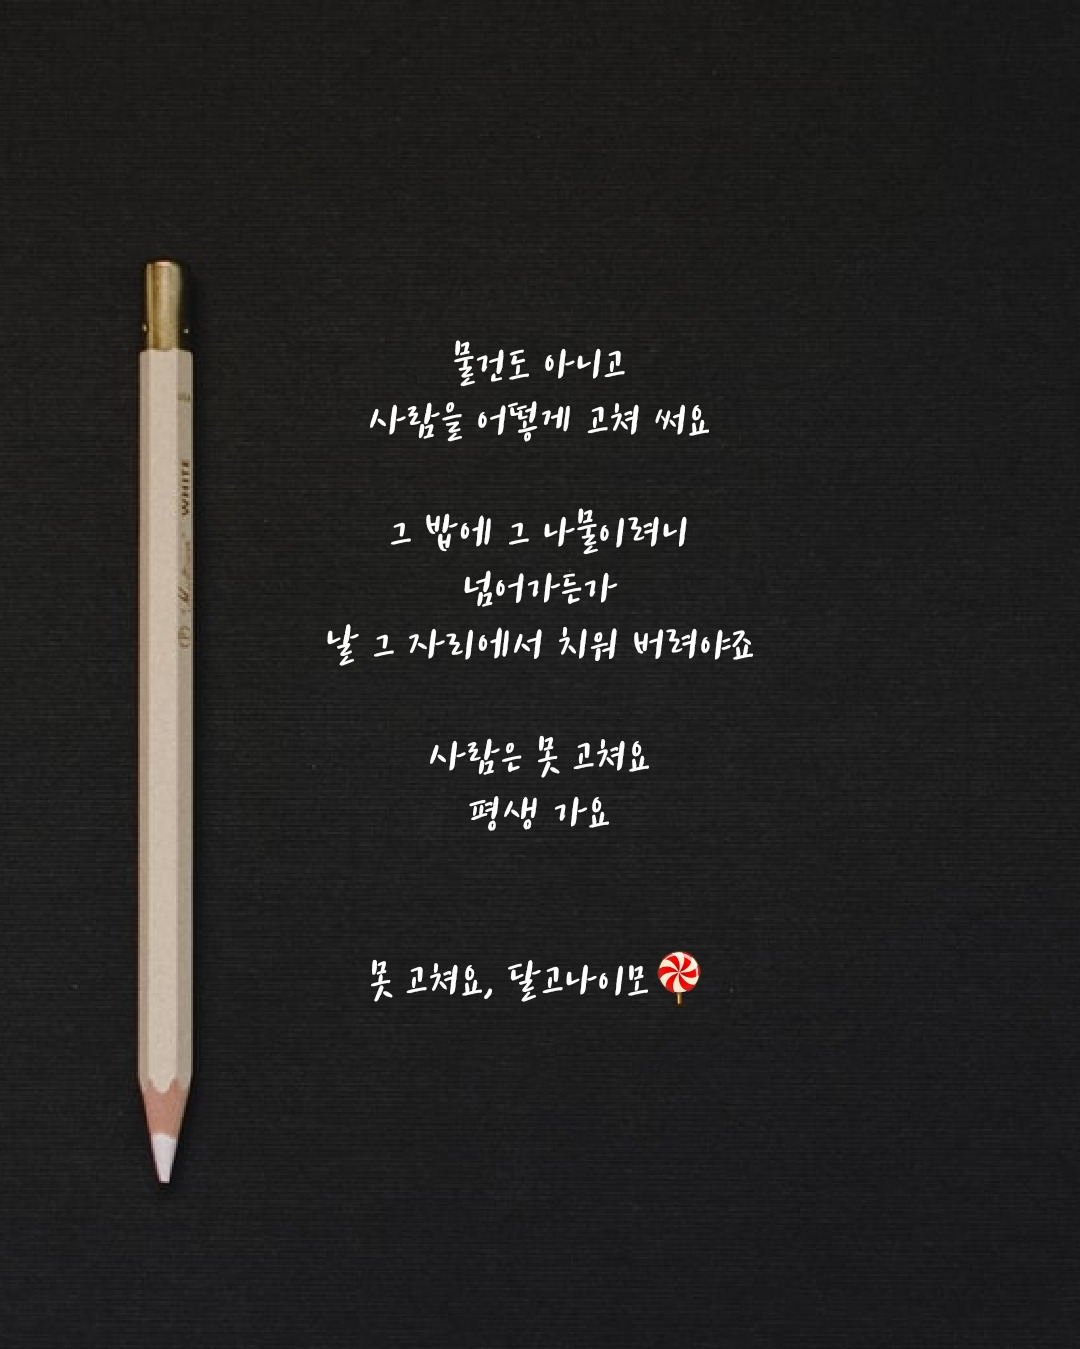 물건도 아니고
사람을 어떻게 고쳐 써요
그 밥에 그 나물이려니
넘어가든가
날 그 자리에서 치워 버려야죠
사람은 못 고쳐요
평생 가요
못 고쳐요, 달고나이모🍭
WHITE